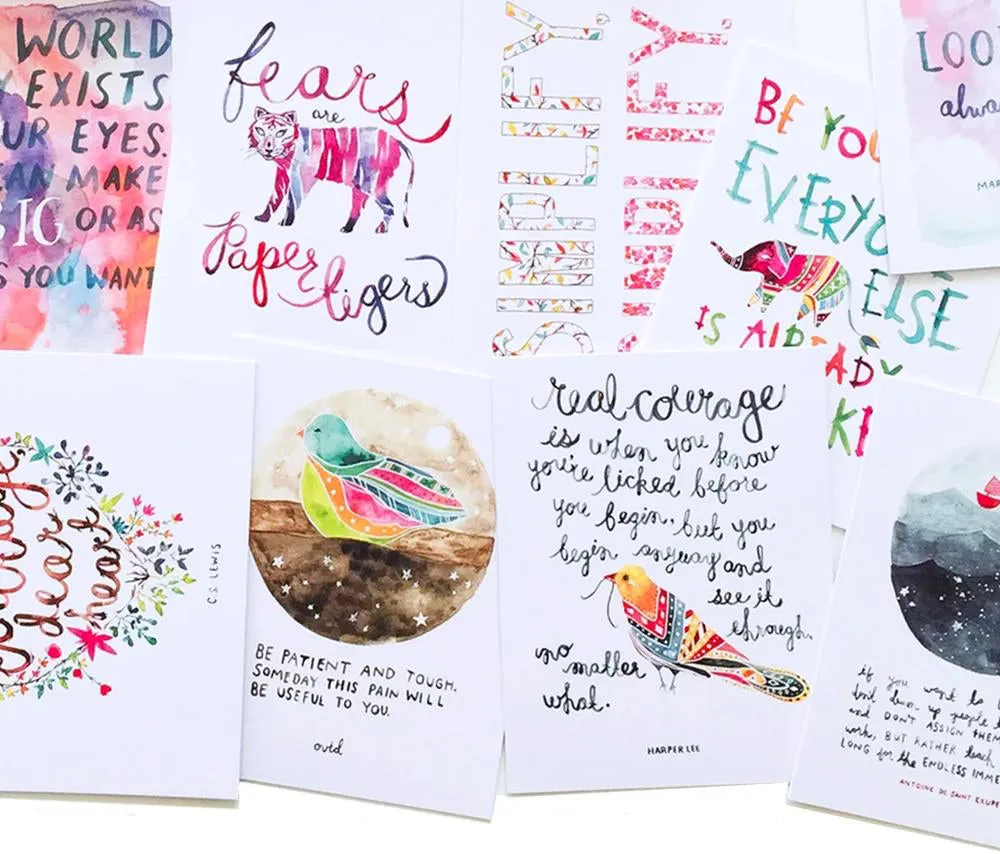 WORLD
EXISTS
UR EYES.
AN MAKE
IC OR AS
S YOU WANT
fears
are
Paper
tigers
SIMPLIFY.
SIMPLIFY.
BE YOU
EVERYO
ELSE
IS ALREADY
LOO
alwa
MAR
Courage,
dear
heart
C.S. LEWIS
BE PATIENT AND TOUGH.
SOMEDAY THIS PAIN WILL
BE USEFUL TO YOU.
ovid
real courage
is when you know
you're licked before
you begin, but you
begin anyway and
see it
through
no
matter
what.
HARPER LEE
if you want to
don't drum up people
and DON'T ASSIGN THEM
work, BUT RATHER teach
LONG for the ENDLESS IMME
ANTOINE DE SAINT EXUPE